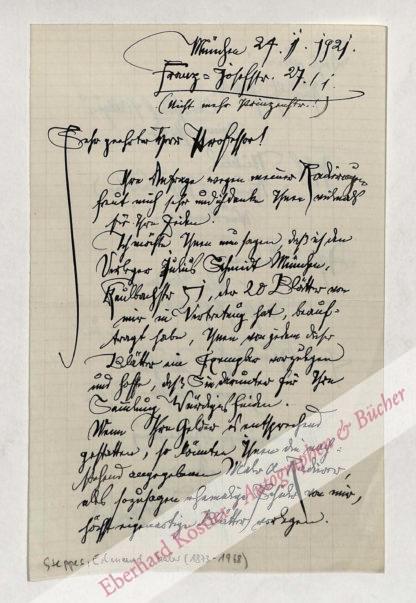 München 24. 1. 1921.
Franz-Josefstr. 27./I.
(Nicht mehr Prinzenstr.!)
Sehr geehrter Herr Professor!
Ihre Anfrage wegen meiner Radierungen
freut mich sehr und ich danke Ihnen vielmals
für Ihre Zeilen.
Ich möchte Ihnen nun sagen, daß ich den
Verleger Julius Schmidt München,
Kaulbachstr, der 20 Blätter von
mir in Vertretung hat, beauf-
tragt habe, Ihnen von jedem dieser
Blätter ein Exemplar vorzulegen
und hoffe, daß Sie darunter für Ihre
Sammlung Würdiges finden.
Wenn Ihre Gelder es entsprechend
gestatten, so könnten Ihnen die
angegebenen Maler u. Radierer,
also sozusagen ehemalige Schüler von mir,
höchst eigenartige Blätter vorlegen.
Steppes, Edmund, Maler (1873-1968)
Eberhard Köstler - Autographen & Bücher